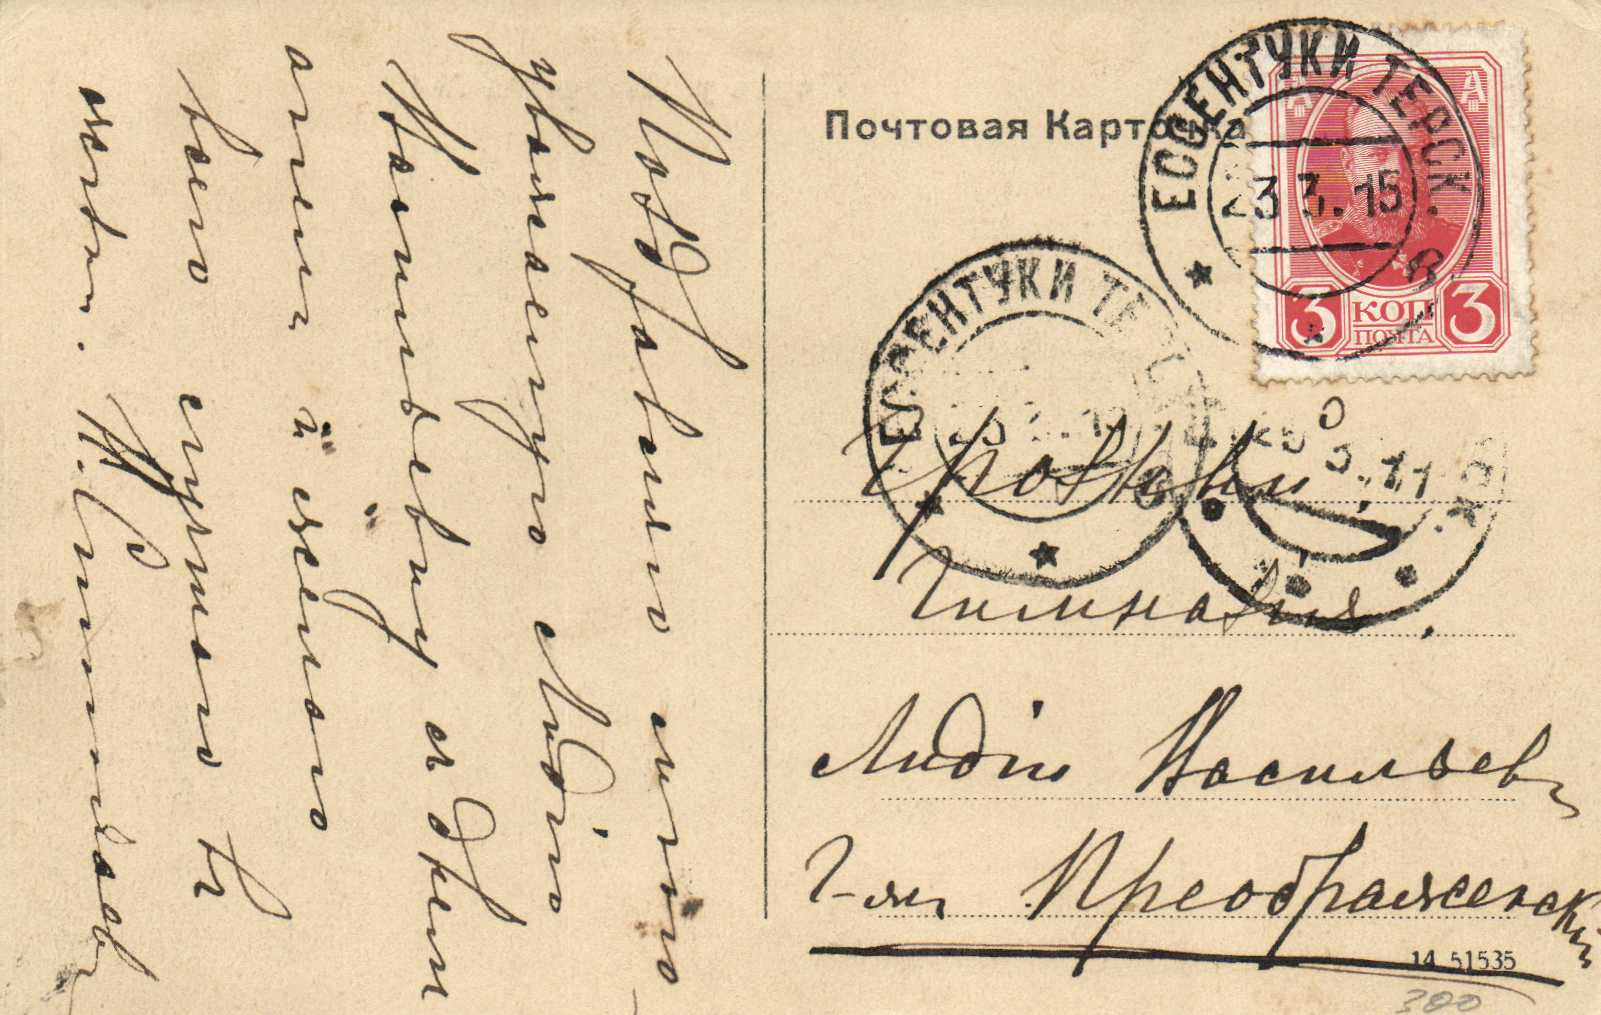 Почтовая Карточка
ЕССЕНТУКИ ТЕРСК.
23 3.15
3 КОП 3
ПОЧТА
ЕССЕНТУКИ ТЕРСК.
Грозный
Гимназия.
Лидіи Васильевн
Г-жѣ Преображенск
14 51535
300
Поздравляю много
уважаемую Лидію
Васильевну съ днем
ангела и желаю
всего лучшаго въ
жизни.